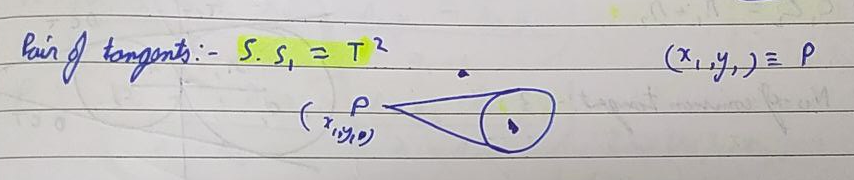 Pair of tangents:- S.S₁ = T² (x₁,y₁) ≡ P
P
(x₁,y₁)